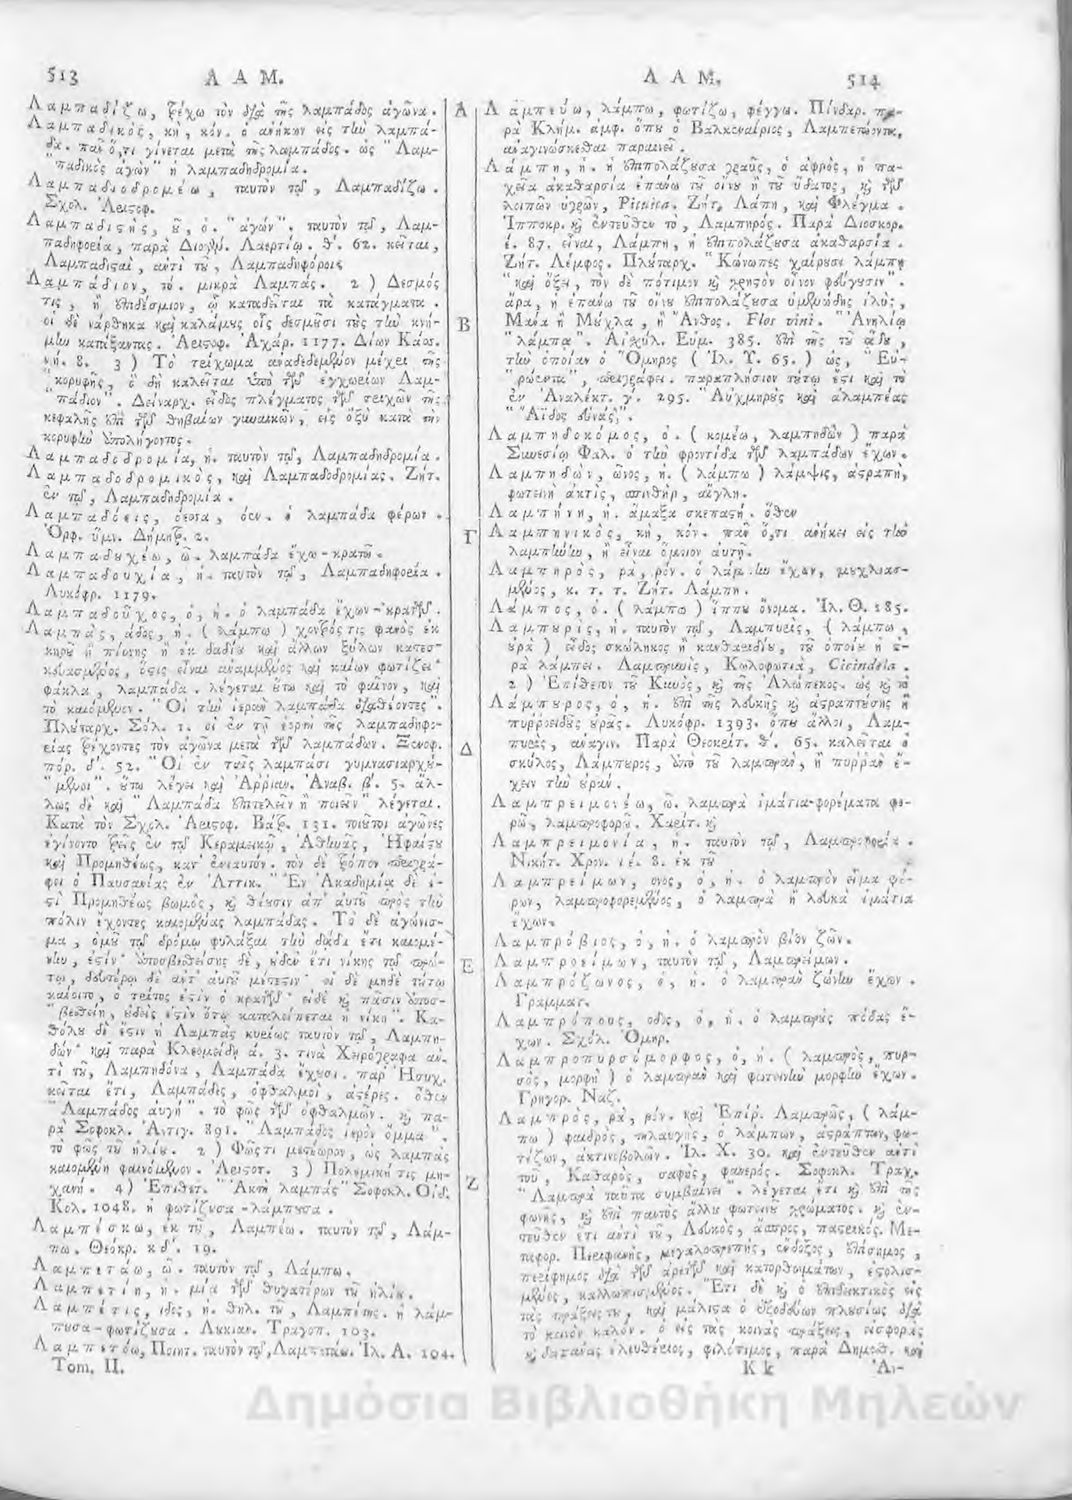 513 Λ Α Μ.
Λαμπαδίζω, τρέχω τὸν διὰ τῆς λαμπάδος ἀγῶνα.
Λαμπαδικὸς, κὴ, κόν. ὁ ἀνήκων εἰς τὴν λαμπά-
δα. πᾶν ὅ,τι γίνεται μετὰ τῆς λαμπάδος. ὡς "Λαμ-
"παδικὸς ἀγὼν" ἡ λαμπαδηδρομία.
Λαμπαδιοδρομέω, ταυτὸν τῷ, Λαμπαδίζω.
Σχολ. Ἀριστοφ.
Λαμπαδιστὴς, οῦ, ὁ. "ἀγών". ταυτὸν τῷ, Λαμ-
παδηφορία, παρὰ Διογεν. Λαερτίῳ. θ'. 62. κεῖται,
Λαμπαδισταὶ, ἀντὶ τοῦ, Λαμπαδηφόροις
Λαμπάδιον, τό. μικρὰ Λαμπάς. 2 ) Δεσμός
τις, ἢ ἐπιδέσμιον, ᾧ καταδεῖται τὰ κατάγματα.
οἱ δὲ νάρθηκα καὶ καλάμους οἷς δεσμοῦσι τοὺς τὴν κνή-
μην κατάξαντας. Ἀριστοφ. Ἀχάρ. 1177. Δίων Κάσς.
νή. 8. 3 ) Τὸ τείχωμα ἀναδεδεμένον μέχρι τῆς
"κορυφῆς, ὃ δὴ καλεῖται ὑπὸ τῶν ἐγχωρίων Λαμ-
"πάδιον". Δείναρχ. εἶδος πλέγματος τῶν τριχῶν τῆς
κεφαλῆς ἐπὶ τῶν Θηβαίων γυναικῶν, εἰς ὀξὺ κατὰ τὴν
κορυφὴν ὑπολήγοντος.
Λαμπαδοδρομία, ἡ. ταυτὸν τῷ, Λαμπαδηδρομία.
Λαμπαδοδρομικὸς, καὶ Λαμπαδοδρομίας. Ζήτ.
ἐν τῷ, Λαμπαδηδρομία.
Λαμπαδόεις, όεσσα, όεν. ὁ λαμπάδα φέρων.
Ὀρφ. ὕμν. Δήμητρ. 2.
Λαμπαδουχέω, ῶ. λαμπάδα ἔχω-κρατῶ.
Λαμπαδουχία, ἡ. ταυτὸν τῷ, Λαμπαδηφορία.
Λυκόφρ. 1179.
Λαμπαδοῦχος, ὁ, ἡ. ὁ λαμπάδα ἔχων-κρατῶν.
Λαμπὰς, άδος, ἡ. ( λάμπω ) χονδρός τις φανὸς ἐκ
κηροῦ ἢ πίσσης ἢ ἐκ δαδίου καὶ ἄλλων ξύλων κατεσ-
κευασμένος, ὅστις εἶναι ἀναμμένος καὶ καίων φωτίζει
φάκλα, λαμπάδα. λέγεται οὕτω καὶ τὸ φαῖνον, καὶ
τὸ καιόμενον. "Οἱ τὴν ἱερὰν λαμπάδα διαθέοντες".
Πλούταρχ. Σόλ. 1. οἱ ἐν τῇ ἑορτῇ τῆς λαμπαδηφο-
ρίας τρέχοντες τὸν ἀγῶνα μετὰ τῶν λαμπάδων. Ξενοφ.
πόρ. δ'. 52. "Οἱ ἐν ταῖς λαμπάσι γυμνασιαρχού-
"μενοι". οὕτω λέγει καὶ Ἀρριαν. Ἀναβ. β'. 5. ἄλ-
λως δὲ καὶ "Λαμπάδα ἐπιτελεῖν ἢ ποιεῖν" λέγεται.
Κατὰ τὸν Σχολ. Ἀριστοφ. Βάτρ. 131. τοιοῦτοι ἀγῶνες
ἐγίνοντο τρεῖς ἐν τῷ Κεραμεικῷ, Ἀθηνᾶς, Ἡφαίστου
καὶ Προμηθέως, κατ' ἐνιαυτόν. τὸν δὲ τρόπον περιγρά-
φει ὁ Παυσανίας ἐν Ἀττικ. "Ἐν Ἀκαδημίᾳ δὲ ἐ-
στὶ Προμηθέως βωμὸς, καὶ θέουσιν ἀπ' αὐτοῦ πρὸς τὴν
πόλιν ἔχοντες καιομένας λαμπάδας. Τὸ δὲ ἀγώνισ-
μα, ὁμοῦ τῷ δρόμῳ φυλάξαι τὴν δᾷδα ἔτι καιομέ-
νην, ἐστίν· ἀποσβεσθείσης δὲ, οὐδὲν ἔτι νίκης τῷ πρώ-
τῳ, δευτέρῳ δὲ ἀντ' αὐτοῦ μέτεστιν· εἰ δὲ μηδὲ τούτῳ
καίοιτο, ὁ τρίτος ἐστὶν ὁ κρατῶν· εἰ δὲ καὶ πᾶσιν ἀποσ-
"βεσθείη, οὐδείς ἐστιν ὅτῳ καταλείπεται ἡ νίκη". Κα-
θόλου δέ ἐστιν ἡ Λαμπὰς κυρίως ταυτὸν τῷ, Λαμπη-
δών· καὶ παρὰ Κλεομήδῃ ά. 3. τινὰ Χειρόγραφα ἀν-
τὶ τοῦ, Λαμπηδόνα, Λαμπάδα ἔχουσι. παρ' Ἡσυχ.
κεῖται ἔτι, Λαμπάδες, ὀφθαλμοὶ, ἀστέρες. ὅθεν
"Λαμπάδος αὐγὴ". τὸ φῶς τῶν ὀφθαλμῶν. καὶ πα-
ρὰ Σοφοκλ. Ἀντιγ. 891. "Λαμπάδος ἱερὸν ὄμμα".
τὸ φῶς τοῦ ἡλίου. 2 ) Φῶς τι μετέωρον, ὡς λαμπὰς
καιομένη φαινόμενον. Ἀριστοτ. 3 ) Πολεμική τις μη-
χανή. 4) Ἐπίθετ. "Ἀκτὴ λαμπάς" Σοφοκλ. Οἰδ.
Κολ. 1048. ἡ φωτίζουσα-λάμπουσα.
Λαμπίσκω, ἐκ τοῦ, Λαμπέω. ταυτὸν τῷ, Λάμ-
πω. Θεόκρ. κδ'. 19.
Λαμπετάω, ῶ. ταυτὸν τῷ, Λάμπω.
Λαμπετίη, ἡ. μία τῶν θυγατέρων τοῦ ἡλίου.
Λαμπέτις, ιδος, ἡ. θηλ. τοῦ, Λαμπέτης. ἡ λάμ-
πουσα-φωτίζουσα. Λουκιαν. Τραγοπ. 103.
Λαμπετόω, Ποιητ. ταυτὸν τῷ, Λαμπετάω. Ἰλ. Α. 104.
Tom. II.
Α
Β
Γ
Δ
Ε
Ζ
Λ Α Μ. 514
Λαμπεύω, λάμπω, φωτίζω, φέγγω. Πίνδαρ. πα-
ρὰ Κλήμ. ἀμφ. ὅπου ὁ Βαλκεναίριος, Λαμπετόωντα,
ἀναγινώσκεσθαι παραινεῖ.
Λάμπη, ἡ. ἡ ἐπιπολάζουσα γραῦς, ὁ ἀφρὸς, ἡ πα-
χεῖα ἀκαθαρσία ἐπάνω τοῦ οἴνου ἢ τοῦ ὕδατος, καὶ τῶν
λοιπῶν ὑγρῶν, Pituita. Ζήτ. Λάπη, καὶ Φλέγμα.
Ἱπποκρ. καὶ ἐντεῦθεν τὸ, Λαμπηρός. Παρὰ Διοσκορ.
έ. 87. εἶναι, Λάμπη, ἡ ἐπιπολάζουσα ἀκαθαρσία.
Ζήτ. Λέμφος. Πλούταρχ. "Κώνωπες χαίρουσι λάμπῃ
"καὶ ὄξει, τὸν δὲ πότιμον καὶ χρηστὸν οἶνον φεύγουσιν".
ἄρα, ἡ ἐπάνω τοῦ οἴνου ἐπιπολάζουσα ὑμενώδης ἰλὺς,
Μανία ἢ Μούχλα, ἢ Ἄνθος. Flos vini. "Ἀνηλίῳ
"λάμπᾳ". Αἰσχύλ. Εὐμ. 385. ἐπὶ τῆς τοῦ ᾅδου,
τὴν ὁποίαν ὁ Ὅμηρος ( Ἰλ. Υ. 65. ) ὡς, "Εὐ-
"ρώεντα", περιγράφει. παραπλήσιον τούτῳ ἐστὶ καὶ τὸ
ἐν Ἀναλέκτ. γ'. 295. "Αὐχμηροὺς καὶ ἀλαμπέας
"Ἄϊδος εὐνάς".
Λαμπηδοκόμος, ὁ. ( κομέω, λαμπηδὼν ) παρὰ
Συνεσίῳ Φαλ. ὁ τὴν φροντίδα τῶν λαμπάδων ἔχων.
Λαμπηδὼν, ῶνος, ἡ. ( λάμπω ) λάμψις, ἀστραπὴ,
φωτεινὴ ἀκτὶς, σπινθὴρ, αἴγλη.
Λαμπήνη, ἡ. ἅμαξα σκεπαστή. ὅθεν
Λαμπηνικὸς, κὴ, κόν. πᾶν ὅ,τι ἀνήκει εἰς τὴν
λαμπήνην, ἢ εἶναι ὅμοιον αὐτῇ.
Λαμπηρὸς, ρὰ, ρόν. ὁ λάμπην ἔχων, μουχλιασ-
μένος, κ. τ. τ. Ζήτ. Λάμπη.
Λάμπος, ὁ. ( λάμπω ) ἵππου ὄνομα. Ἰλ. Θ. 185.
Λαμπουρὶς, ἡ. ταυτὸν τῷ, Λαμπυρὶς, ( λάμπω,
οὐρὰ ) εἶδος σκώληκος ἢ κανθαριδίου, τοῦ ὁποίου ἡ οὐ-
ρὰ λάμπει. Λαμπυρὶς, Κωλοφωτιὰ, Cicindela.
2 ) Ἐπίθετον τοῦ Κυνὸς, καὶ τῆς Ἀλώπεκος. ὡς καὶ τὸ
Λάμπουρος, ὁ, ἡ. ἐπὶ τῆς λευκῆς καὶ ἀστραπτούσης ἢ
πυρροειδοῦς οὐρᾶς. Λυκόφρ. 1393. ὅπου ἄλλοι, Λαμ-
πυρὶς, ἀναγιν. Παρὰ Θεοκρίτ. θ'. 65. καλεῖται ὁ
σκύλος, Λάμπουρος, ἀπὸ τοῦ λαμπρὰν, ἢ πυρρὰν ἔ-
χειν τὴν οὐράν.
Λαμπρειμονέω, ῶ. λαμπρὰ ἱμάτια-φορέματα φο-
ρῶ, λαμπροφορῶ. Χαρίτ. καὶ
Λαμπρειμονία, ἡ. ταυτὸν τῷ, Λαμπροφορία.
Νικήτ. Χρον. ιέ. 8. ἐκ τοῦ
Λαμπρείμων, ονος, ὁ, ἡ. ὁ λαμπρὸν εἷμα φέ-
ρων, λαμπροφορεμένος, ὁ λαμπρὰ ἢ λευκὰ ἱμάτια
ἔχων.
Λαμπρόβιος, ὁ, ἡ. ὁ λαμπρὸν βίον ζῶν.
Λαμπροείμων, ταυτὸν τῷ, Λαμπρείμων.
Λαμπρόζωνος, ὁ, ἡ. ὁ λαμπρὰν ζώνην ἔχων.
Γραμματ.
Λαμπρόπους, οδος, ὁ, ἡ. ὁ λαμπροὺς πόδας ἔ-
χων. Σχολ. Ὁμηρ.
Λαμπροπυρσόμορφος, ὁ, ἡ. ( λαμπρὸς, πυρ-
σὸς, μορφὴ ) ὁ λαμπρὰν καὶ φωτεινὴν μορφὴν ἔχων.
Γρηγορ. Ναζ.
Λαμπρὸς, ρὰ, ρόν. καὶ Ἐπίρ. Λαμπρῶς, ( λάμ-
πω ) φαιδρὸς, τηλαυγὴς, ὁ λάμπων, ἀστράπτων, φω-
τίζων, ἀκτινοβολῶν. Ἰλ. Χ. 30. καὶ ἐντεῦθεν ἀντὶ
τοῦ, Καθαρὸς, σαφὴς, φανερός. Σοφοκλ. Τραχ.
"Λαμπρὰ ταῦτα συμβαίνει". λέγεται ἔτι καὶ ἐπὶ τῆς
φωνῆς, καὶ ἐπὶ παντὸς ἄλλου φωτεινοῦ χρώματος. καὶ ἐν-
τεῦθεν ἔτι ἀντὶ τοῦ, Λευκὸς, ἄσπρος, παστρικός. Με-
ταφορ. Περιφανὴς, μεγαλοπρεπὴς, ἔνδοξος, ἐπίσημος,
περίφημος διὰ τῶν ἀρετῶν καὶ κατορθωμάτων, ἐστολισ-
μένος, καλλωπισμένος. Ἔτι δὲ καὶ ὁ ἐπιδεικτικὸς εἰς
τὰς πράξεις του, καὶ μάλιστα ὁ ἐξοδεύων πλουσίως διὰ
τὸ κοινὸν καλόν. ὁ εἰς τὰς κοινὰς πράξεις, εἰσφορὰς
καὶ δαπάνας ἐλευθέριος, φιλότιμος, παρὰ Δημοσθ. καὶ
K k Ἀι-
Δημόσια Βιβλιοθήκη Μηλεών